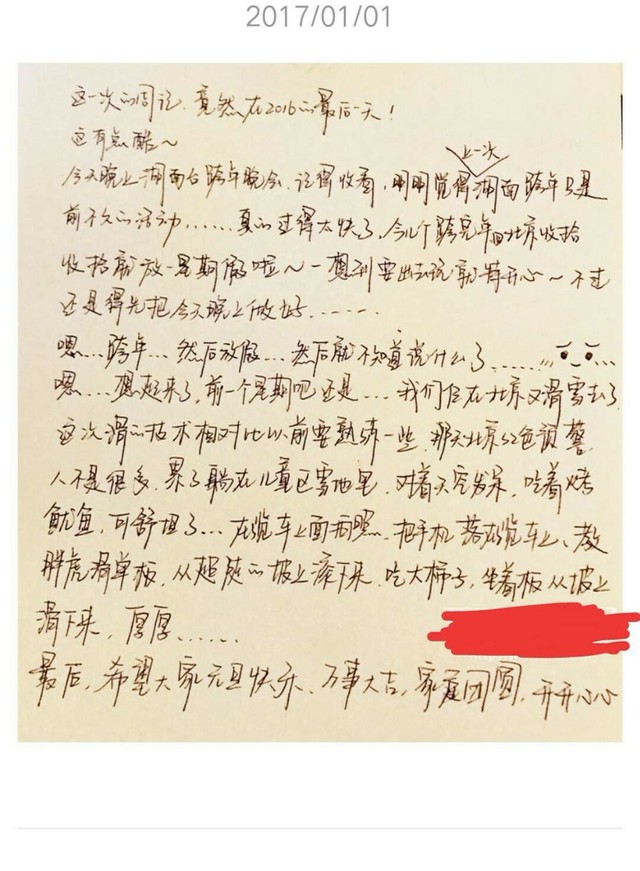 2017/01/01
这一次的周记,竟然在2016的最后一天!
这有点酷~
上一次
今天晚上湖南台跨年晚会,记得收看,明明觉得湖南跨年只是
前不久的活动......真的过得太快了,今儿个跨完年回北京收拾
收拾就放一星期假啦~一想到要出去玩就特开心~不过
还是得先把今天晚上做好......
嗯...跨年...然后放假...然后就不知道说什么了......
嗯...想起来了,前一个星期吧还是...我们仨在北京又滑雪去了
这次滑的技术相对比以前要熟练一些,那天北京红色预警
人不是很多,累了躺在儿童区雪地里,对着天空发呆,吃着烤
鱿鱼,可舒坦了...在缆车上面自照,把手机落在缆车上、教
胖虎滑单板,从超陡的坡上滚下来,吃大柿子,坐着板从坡上
滑下来,厚厚......
最后,希望大家元旦快乐,万事大吉,家庭团圆,开开心心